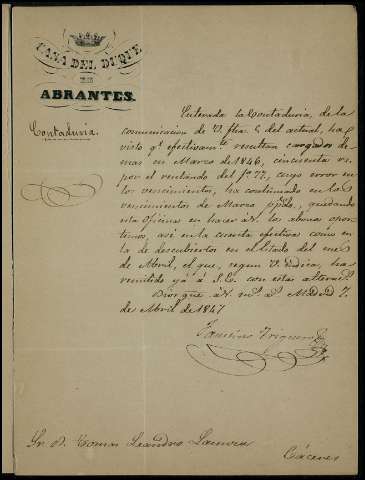 CASA DEL DUQUE
DE
ABRANTES.
Contaduria.
Enterada la Contaduria, de la
comunicacion de V. fha. 2 del actual, ha
visto qe. efectivamte. resultan cargados de
mas en Marzo de 1846, cincuenta rs.
por el rentando del fo. 77, cuyo error en
los vencimientos, ha continuado en los
vencimientos de Marzo ppdo., quedando
esta Oficina en hacer á V. los abonos opor-
tunos, asi en la cuenta efectiva como en
la de descubiertos en el Estado del mes
de Abril, el que, segun V. indica, ha
remitido ya á S.E. con estas alterac.
Dios gue. á V. ms. as. Madrid 7
de Abril de 1847
Faustino Triguero
Sr. D. Tomas Leandro
Cáceres